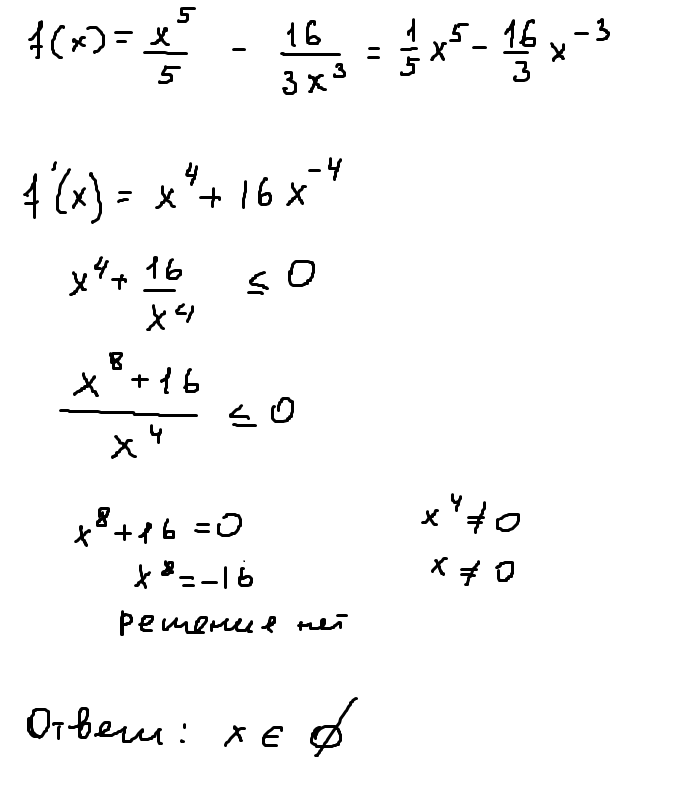 f(x) = x⁵/5 - 16/(3x³) = 1/5 x⁵ - 16/3 x⁻³
f'(x) = x⁴ + 16x⁻⁴
x⁴ + 16/x⁴ ≤ 0
(x⁸ + 16)/x⁴ ≤ 0
x⁸ + 16 = 0 x⁴ ≠ 0
x⁸ = -16 x ≠ 0
решение нет
Ответ: x ∈ ∅